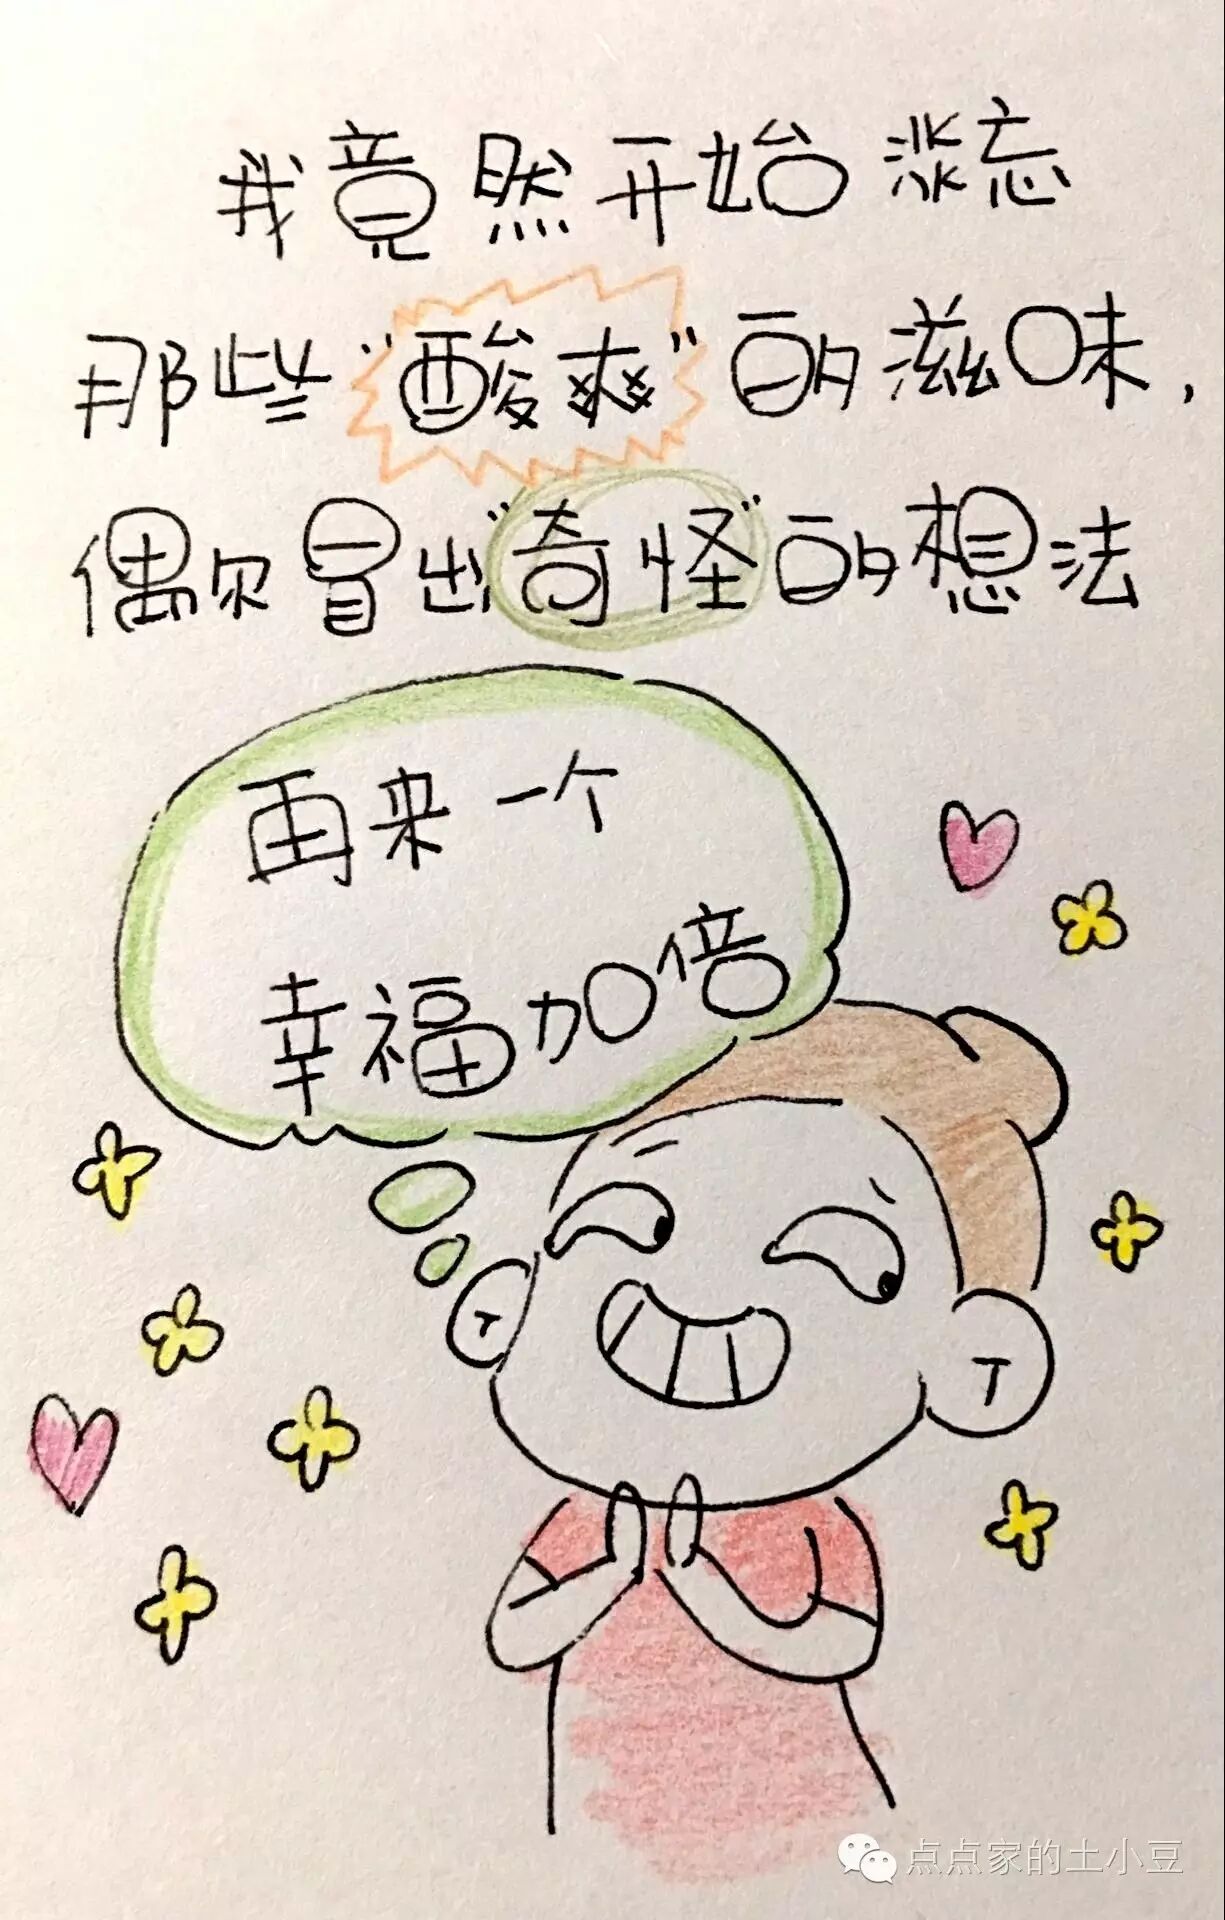 我竟然开始淡忘
那些“酸爽”的滋味，
偶尔冒出“奇怪”的想法
再来一个
幸福加倍
点点家的土小豆